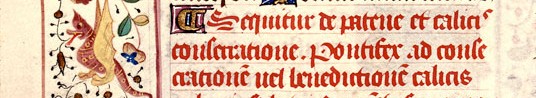 Sequitur de patene et calicis
consecratione. Pontifex ad conse
crationē uel benedictionem calicis